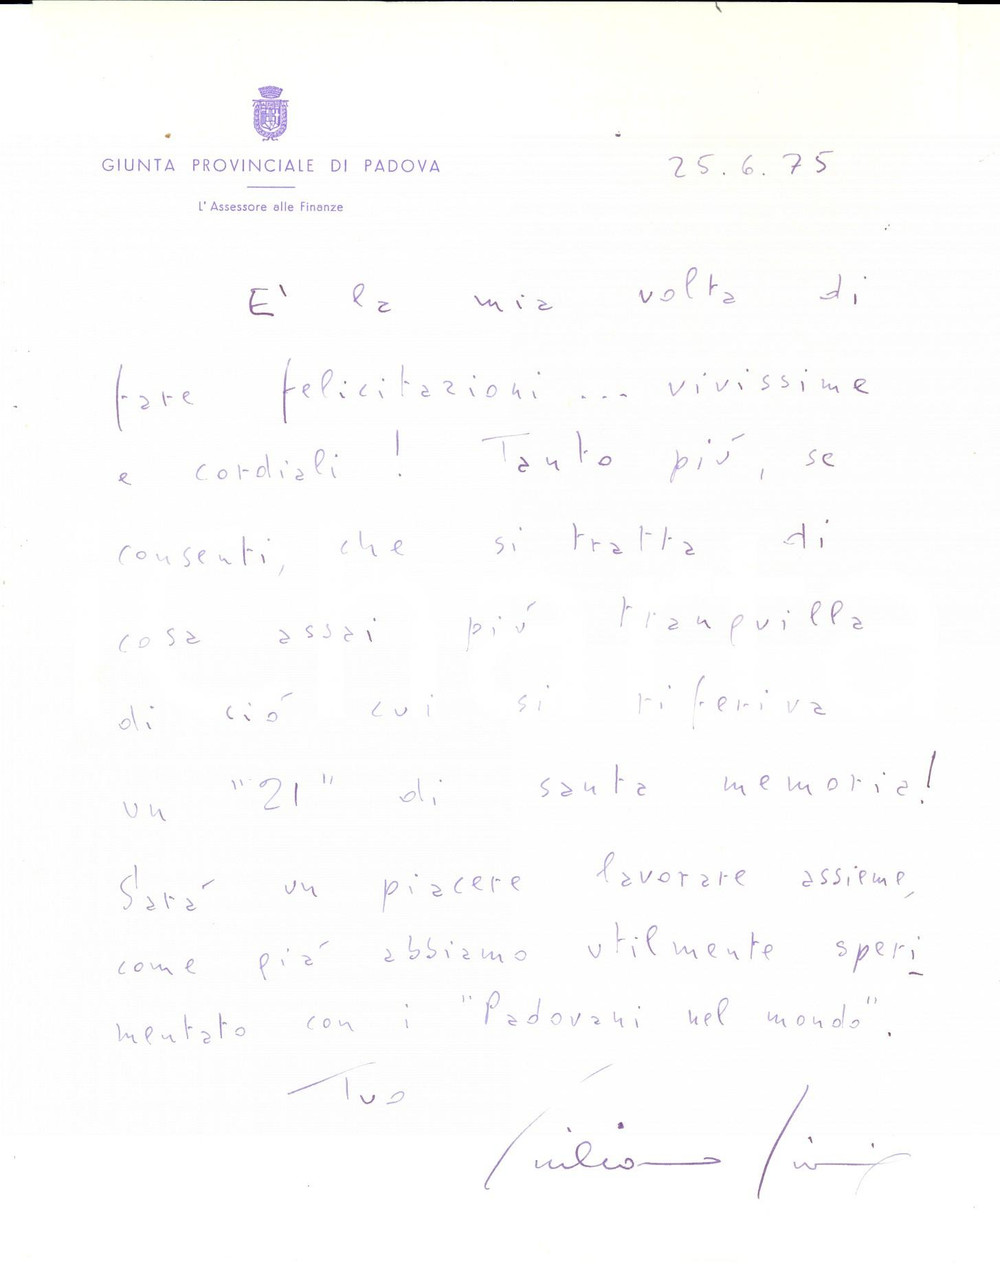 GIUNTA PROVINCIALE DI PADOVA
25.6.75
L'Assessore alle Finanze
E' la mia volta di
fare felicitazioni ... vivissime
e cordiali! Tanto piú, se
consenti, che si tratta di
cosa assai piú tranquilla
di ció cui si riferiva
un "21" di santa memoria!
Sará un piacere lavorare assieme,
come giá abbiamo utilmente speri
mentato con i "Padovani nel mondo".
Tuo